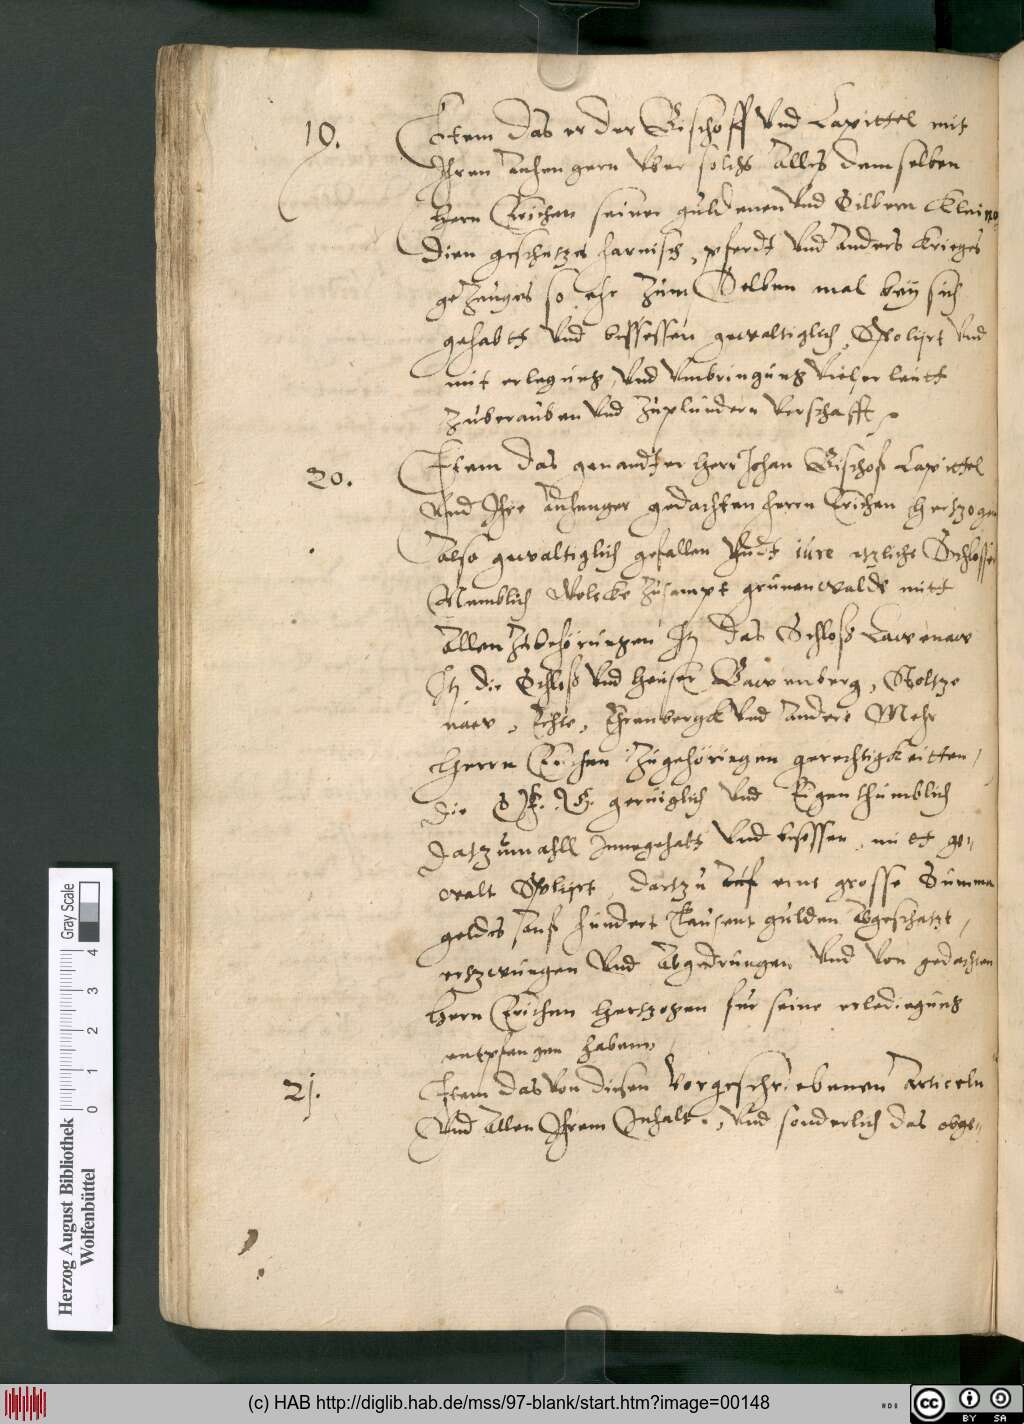 19.
Item das er der Bischoff vnd Capittel mit
Ihren Anhengern vber solchs alles demselben
hern Erichen seiner guldenen vnd Silbern Kleino
dien geschutzes harnisch, pferdt vnd anders krieges
gezeuges so ehr zum Selben mal bey sich
gehabtt vnd bessessen gewaltiglich, Spolijrt vnd
mit erlegung, vnd vmbringung vieler leutt
zuberauben vnd zuplundern verschafft
20.
Item das genandter herr Johan Bischof Capittel
vnd Ihre Anhenger gedachten herrn Erichen hertzogen
also gewaltiglich gefallen iure etzliche Schlosser
Nemblich Welcke zusampt grunenwalde mitt
allen Zubehörungen It das Schloß Lawenaw
It die Schloß vnd heuser Bawenberg, Stoltze
naw, Echte, Ehrenbergk vnd andere Mehr
herrn Erichen zugehörigen gerechtigkeitten,
die S. F. G. geruiglich vnd Eigenthumblich
datzumahll Innegehabt vnd besessen, mitt ge-
walt Spolijrt, dartzu eine grosse Summa
geldes hundert Tausent gulden abgeschatzt,
ertzwungen vnd abgedrungen vnd von gedachten
hern Erichen hertzogen fur seine erledigung
entpfangen haben,
21.
Item das von diesen vorgeschriebenen Articeln
vnd allen Ihrem Inhalt, vnd sonderlich das obge-
Herzog August Bibliothek
Wolfenbüttel
0 1 2 3 4
Gray Scale
(c) HAB http://diglib.hab.de/mss/97-blank/start.htm?image=00148
cc BY SA